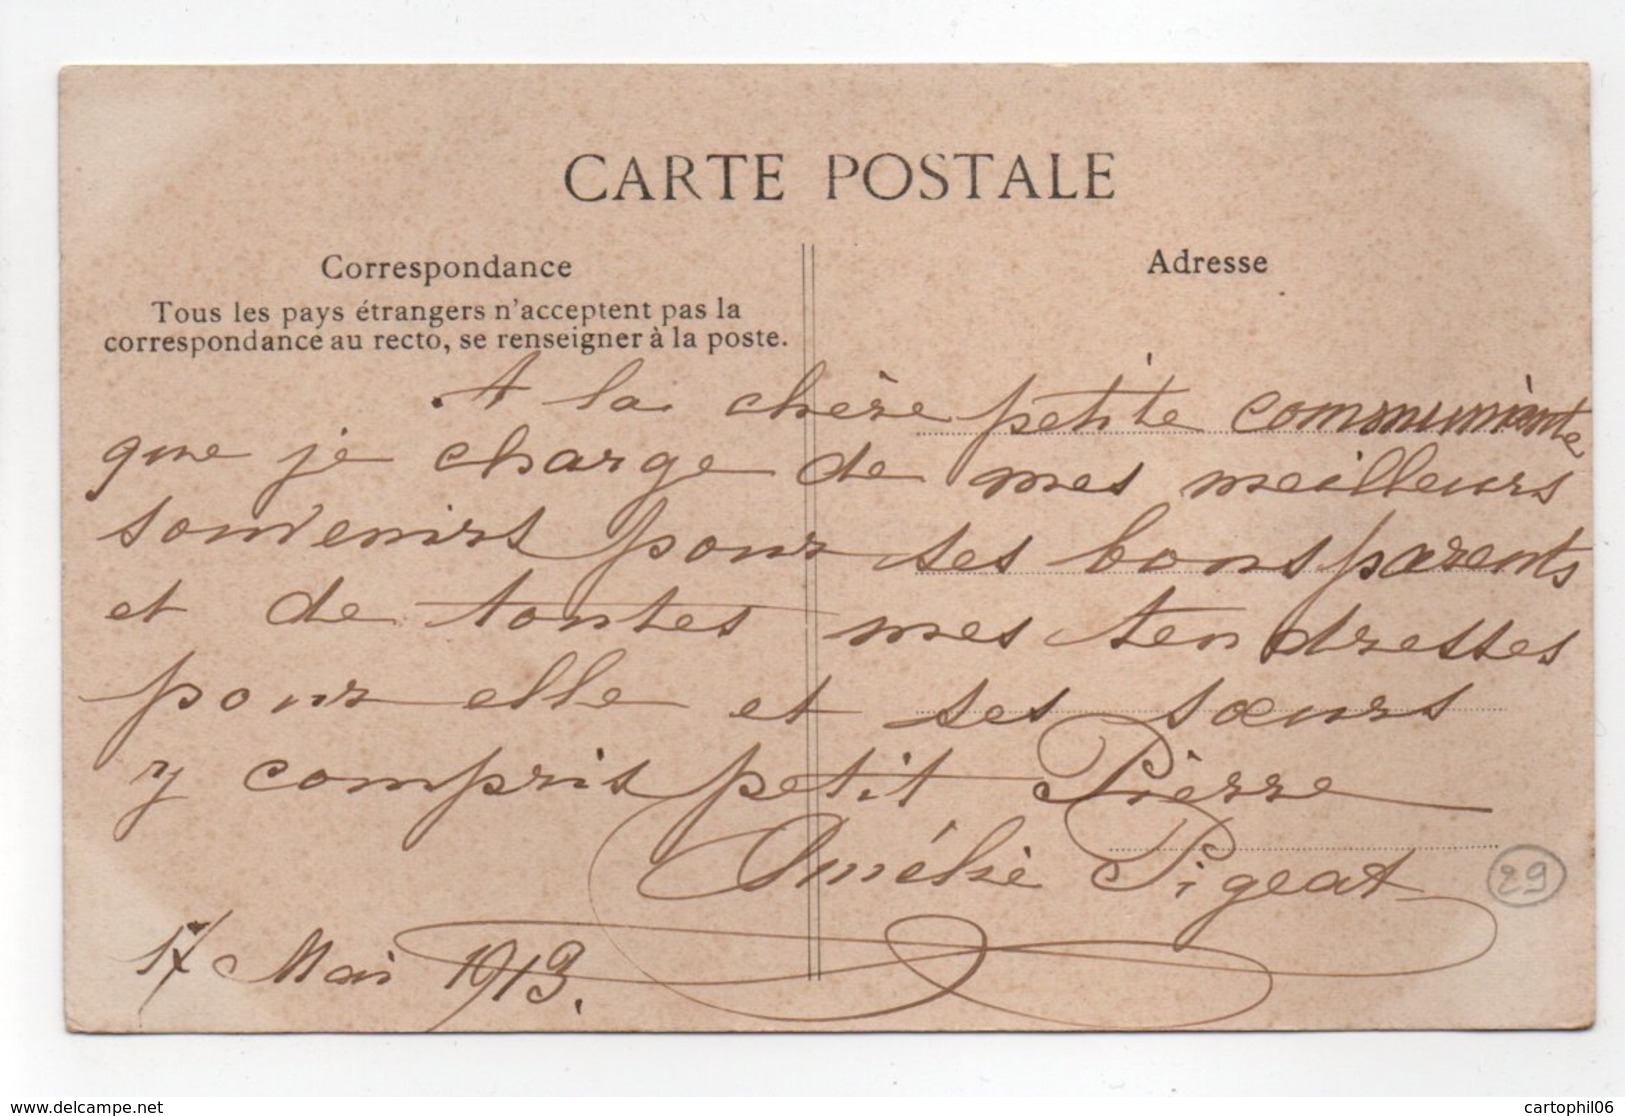 CARTE POSTALE
Correspondance
Tous les pays étrangers n'acceptent pas la
correspondance au recto, se renseigner à la poste.
Adresse
A la chère petite communiante
que je charge de mes meilleurs
souvenirs pour ses bons parents
et de toutes mes tendresses
pour elle et ses sœurs
y compris petit Pierre
Amélie Pigeat
17 Mai 1913.
29
www.delcampe.net
cartophil06